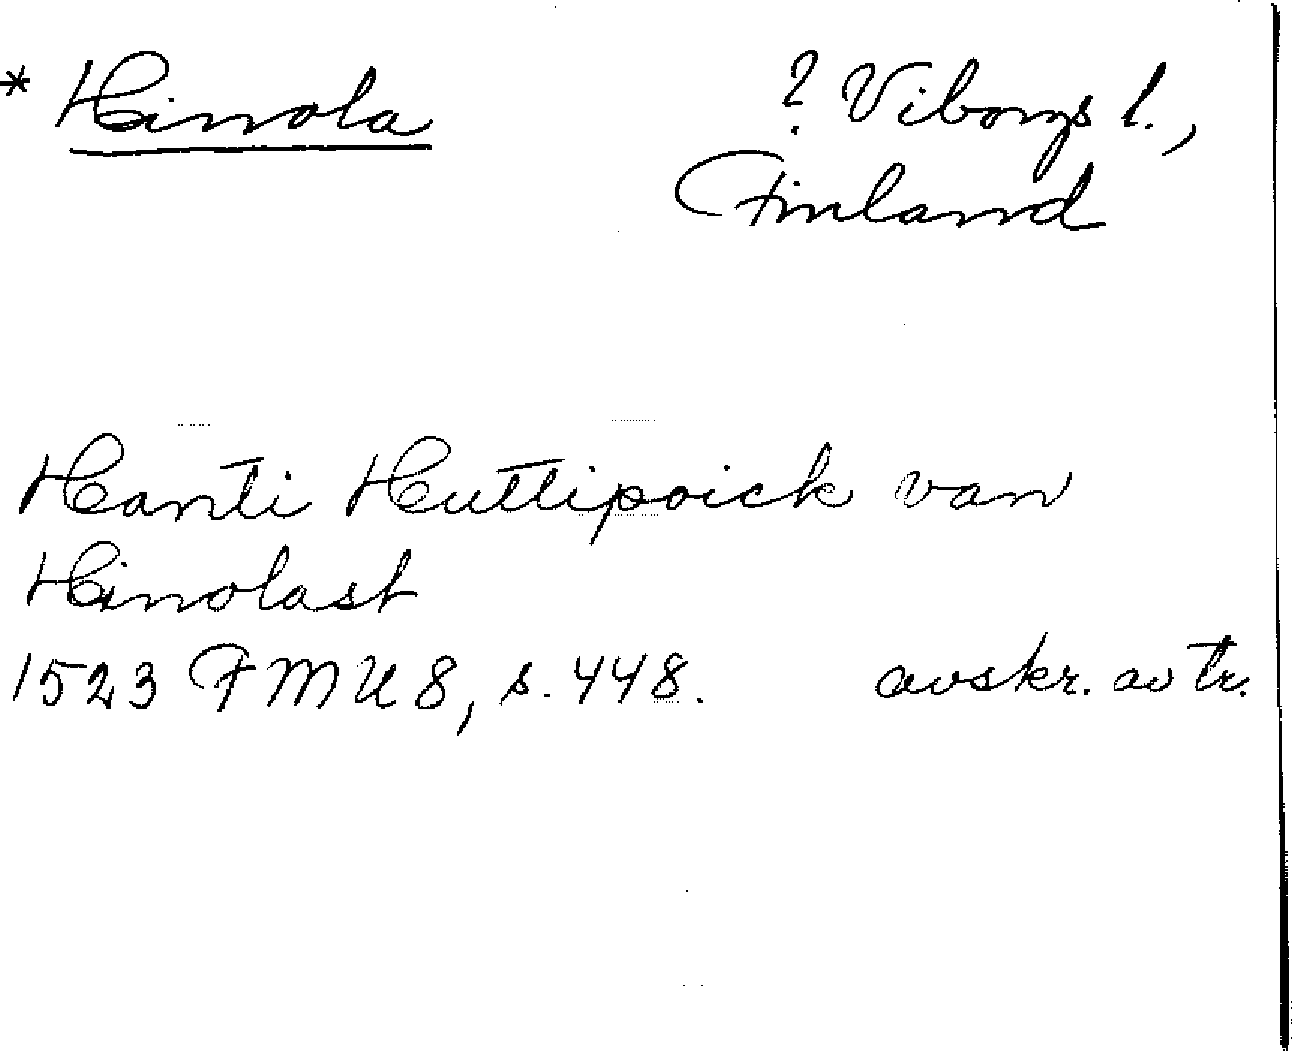 * Hinola
? Viborgs l.,
Finland
Hanti Huttipoick van
Hinolast
1523 FMU 8, s. 448. avskr. av tr.